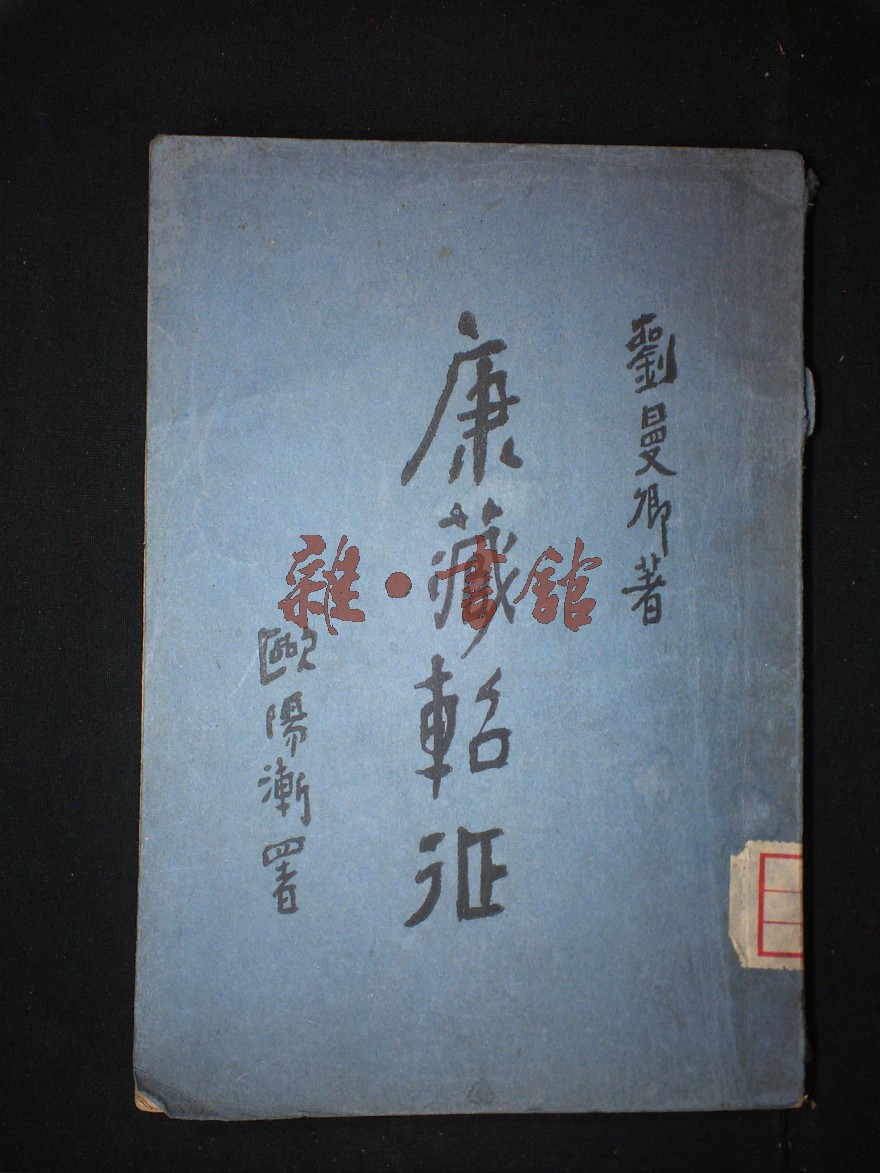 劉曼卿著
康藏軺征
歐陽漸署
雜·書館